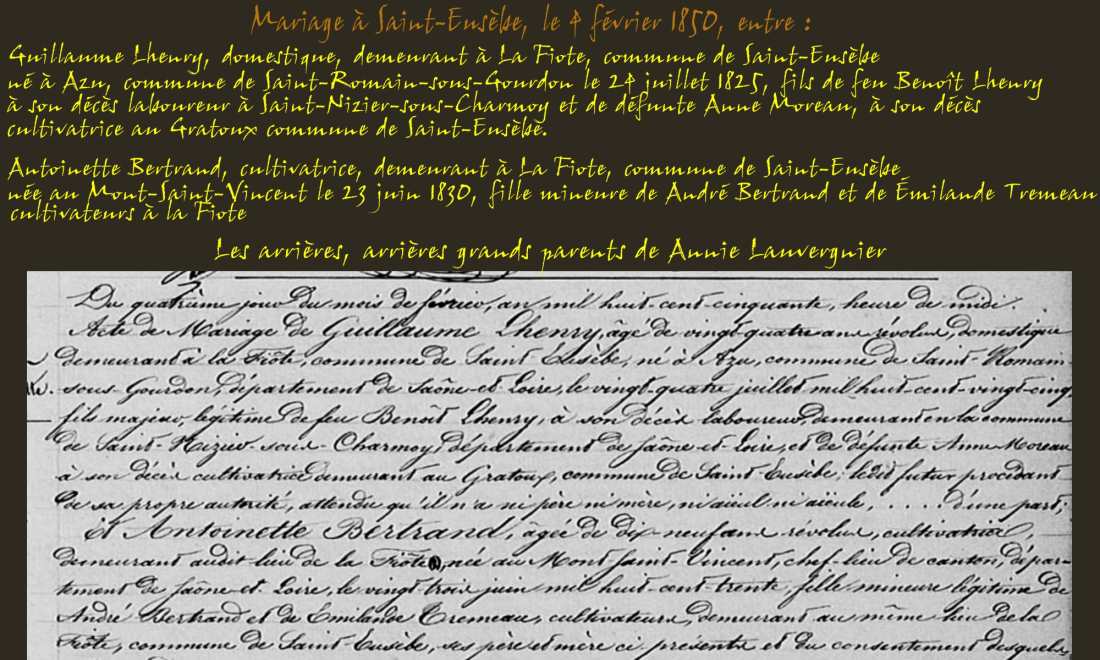 Mariage à Saint-Eusèbe, le 4 février 1850, entre :
Guillaume Lhenry, domestique, demeurant à La Fiote, commune de Saint-Eusèbe
né à Azu, commune de Saint-Romain-sous-Gourdon le 24 juillet 1825, fils de feu Benoît Lhenry
à son décès laboureur à Saint-Nizier-sous-Charmoy et de défunte Anne Moreau, à son décès
cultivatrice au Gratoux commune de Saint-Eusèbe.
Antoinette Bertrand, cultivatrice, demeurant à La Fiote, commune de Saint-Eusèbe
née au Mont-Saint-Vincent le 23 juin 1830, fille mineure de André Bertrand et de Émilande Tremeau
cultivateurs à la Fiote
Les arrières, arrières grands parents de Annie Lauvergnier
Du quatrième jour du mois de février, an mil huit-cent-cinquante, heure de midi.
Acte de Mariage de Guillaume Lhenry, âgé de vingt-quatre ans révolus, domestique
demeurant à la Fiôte, commune de Saint Eusèbe, né à Azu, commune de Saint Romain-
sous-Gourdon, département de Saône-et-Loire, le vingt-quatre juillet mil huit-cent-vingt-cinq,
fils majeur, légitime de feu Benoît Lhenry, à son décès laboureur, demeurant en la commune
de Saint-Nizier-sous-Charmoy, département de Saône-et-Loire, et de défunte Anne Moreau
à son décès cultivatrice demeurant au Gratoux, commune de Saint Eusèbe, ledit futur procédant
de sa propre autorité, attendu qu'il n'a ni père ni mère, ni aïeul ni aïeule, . . . . d'une part;
Et Antoinette Bertrand, âgée de dix-neuf ans révolus, cultivatrice,
demeurant audit-lieu de la Fiôte, née au Mont-Saint-Vincent, chef-lieu de canton, dépar-
tement de Saône et Loire, le vingt-trois juin mil huit-cent-trente, fille mineure légitime de
André Bertrand et de Emilande Tremeau, cultivateurs, demeurant au même lieu de la
Fiôte, commune de Saint-Eusèbe, ses père et mère ci présents et du consentement desquels